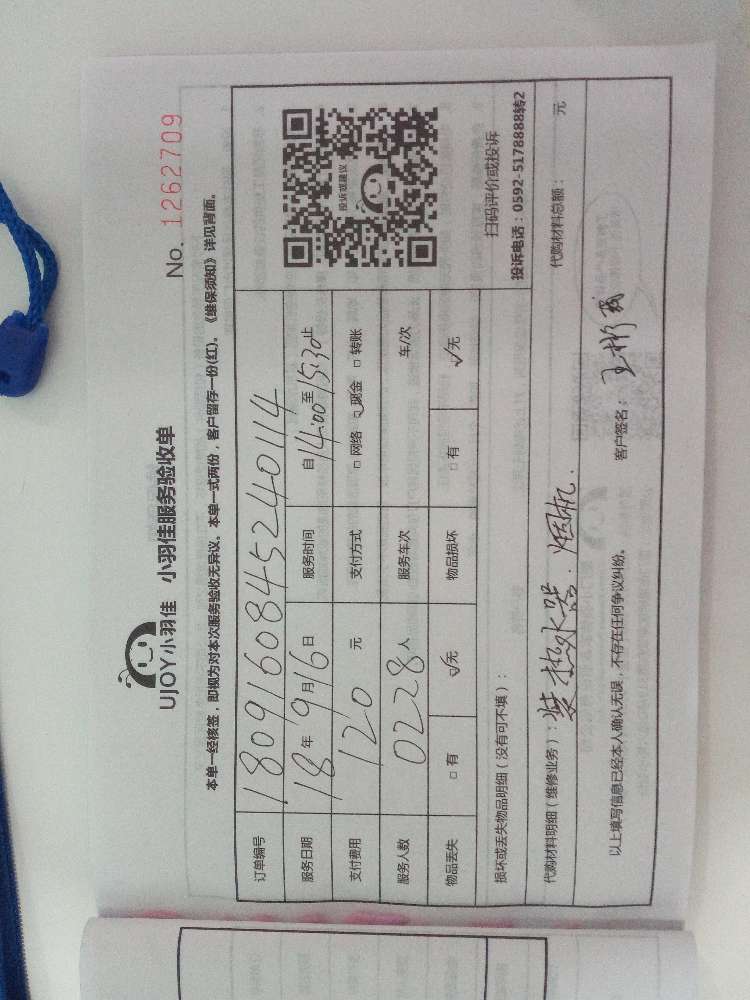 UJOY小羽佳 小羽佳服务验收单
No. 1262709
本单一经核签，即视为对本次服务验收无异议。本单一式两份，客户留存一份(红)。《维保须知》详见背面。
订单编号 1809160845240114
服务日期 18年9月16日 服务时间 自14:00至15:30止
支付费用 120元 支付方式 □网络 ☑现金 □转账
服务人数 0228人 服务车次 车/次
物品丢失 □有 ☑无 物品损坏 □有 ☑无
投诉或建议
扫码评价或投诉
投诉电话：0592-5178888转2
损坏或丢失物品明细（没有可不填）：
代购材料明细（维修业务）：装热水器、烟机. 代购材料总额： 元
以上填写信息已经本人确认无误，不存在任何争议纠纷。 客户签名：王彬